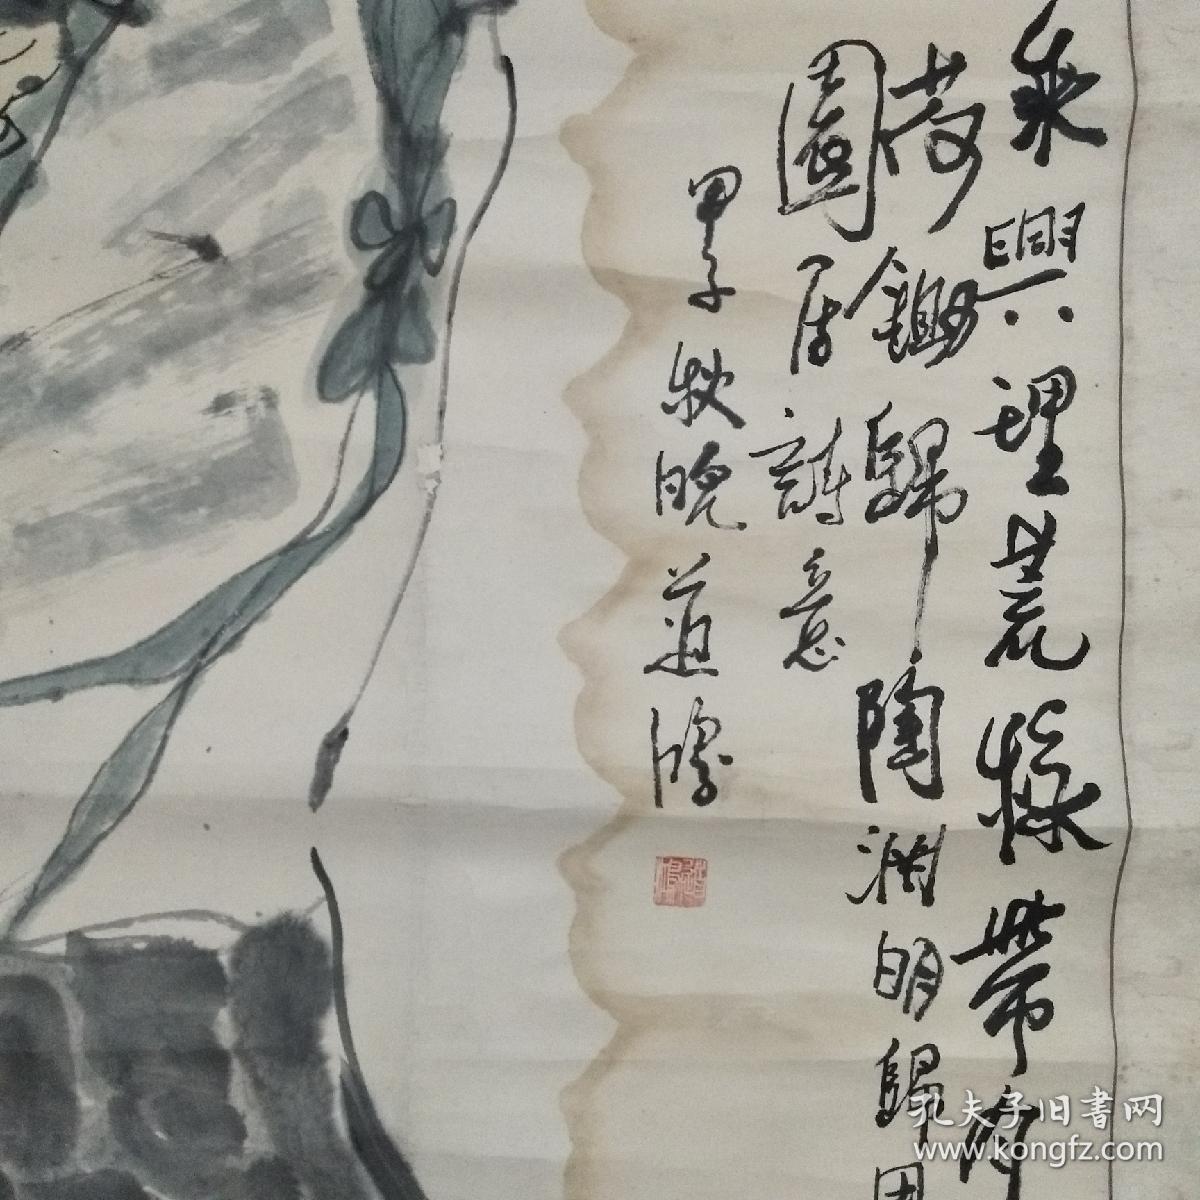 興理荒穢帶月
荷鋤歸 陶淵明歸田
園居詩意
甲子秋晚道鴻
道鴻
孔夫子旧書网
www.kongfz.com